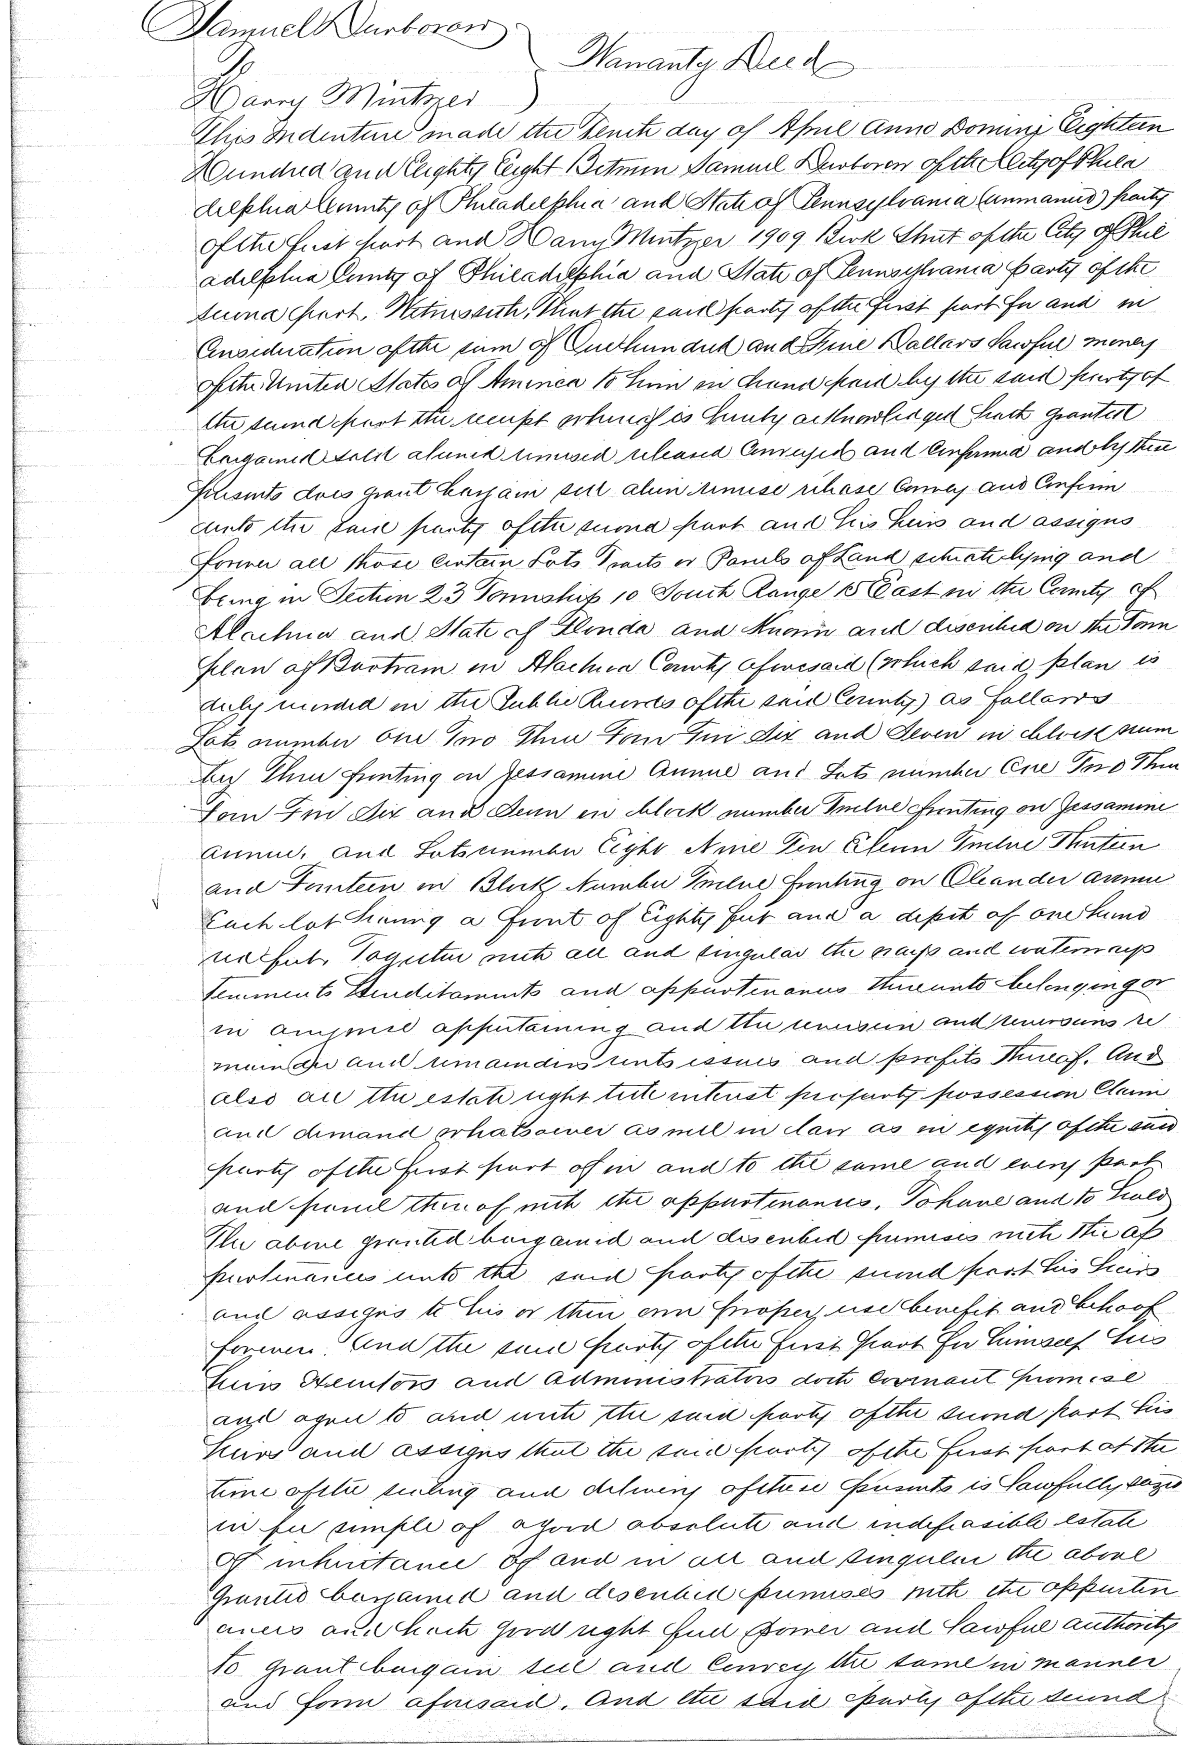 Samuel Durborow
Warranty Deed
Harry Mintzer
This Indenture made the Tenth day of April Anno Domini Eighteen
Hundred and Eighty Eight Between Samuel Durborow of the City of Phila
delphia County of Philadelphia and State of Pennsylvania (unmarried) party
of the first part and Harry Mintzer 1909 Berk Street of the City of Phil
adelphia County of Philadelphia and State of Pennsylvania party of the
second part. Witnesseth, That the said party of the first part for and in
Consideration of the sum of One hundred and Five Dollars lawful money
of the United States of America to him in hand paid by the said party of
the second part the receipt whereof is hereby acknowledged hath granted
bargained sold aliened remised released Conveyed and Confirmed and by these
presents does grant bargain sell alien remise release Convey and Confirm
unto the said party of the second part and his heirs and assigns
forever all those certain Lots Tracts or Parcels of Land situate lying and
being in Section 23 Township 10 South Range 18 East in the County of
Alachua and State of Florida and Known and described on the Town
plan of Bartram in Alachua County aforesaid (which said plan is
duly recorded in the Public Records of the said County) as follows
Lots number One Two Three Four Five Six and Seven in block num
ber Three fronting on Jessamine Avenue and Lots number One Two Three
Four Five Six and Seven in block number Twelve fronting on Jessamine
avenue, and Lots number Eight Nine Ten Eleven Twelve Thirteen
and Fourteen in Block Number Twelve fronting on Oleander avenue
Each lot having a front of Eighty feet and a depth of one hund
red feet. Together with all and singular the ways and waterways
tenements Hereditaments and appurtenances thereunto belonging or
in anywise appertaining and the reversion and reversions re
mainder and remainders rents issues and profits thereof. And
also all the estate right title interest property possession Claim
and demand whatsoever as well in law as in equity of the said
party of the first part of in and to the same and every part
and parcel thereof with the appurtenances. To have and to hold
The above granted bargained and described premises with the ap
purtenances unto the said party of the second part his heirs
and assigns to his or their own proper use benefit and behoof
forever. And the said party of the first part for himself his
heirs Executors and administrators doth covenant promise
and agree to and with the said party of the second part his
heirs and assigns that the said party of the first part at the
time of the sealing and delivery of these presents is lawfully seized
in fee simple of a good absolute and indefeasible estate
of inheritance of and in all and singular the above
granted bargained and described premises with the appurten
ances and hath good right full power and lawful authority
to grant bargain sell and Convey the same in manner
and form aforesaid. And the said party of the second